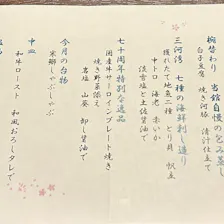 椀替わり 当館自慢の包み蒸し
白子豆腐 焼き河豚 清汁仕立て
三河湾 七種の海鮮刺し盛り
獲れたて地魚二種 とり貝 帆立
中トロ 海老 赤いか
淡雪塩と土佐醤油で
七十周年特別な逸品
国産牛サーロインプレート焼き
焼き野菜添え
岩塩 山葵 卸し醤油で
今月の台物
米郷しゃぶしゃぶ
中皿
和牛ロースト 和風おろしタレで